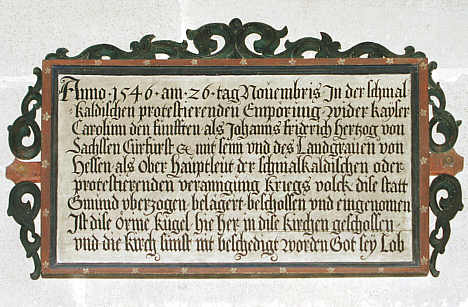 Anno · 1546 · am · 26 · tag Nouembris In der schmal
kaldischen protestierenden Emporung wider kayser
Carolinn den funfften als Johanns fridrich hertzog von
Sachssen Cirfurst & mit seim vnd des Landgrauen von
Hessen als Ober Hauptleut der schmalkaldischen oder
protestierenden veranngung kriegs volck dise statt
Gmünd vberzogen belägert beschossen vnd eingenomen
Ist dise örme kugel hie her in dise kirchen geschossen
vnd die kirch sunst nit beschedigt worden Got sey Lob